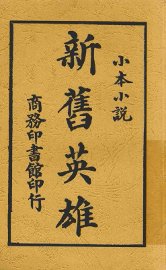 小本小説
新舊英雄
商務印書館印行